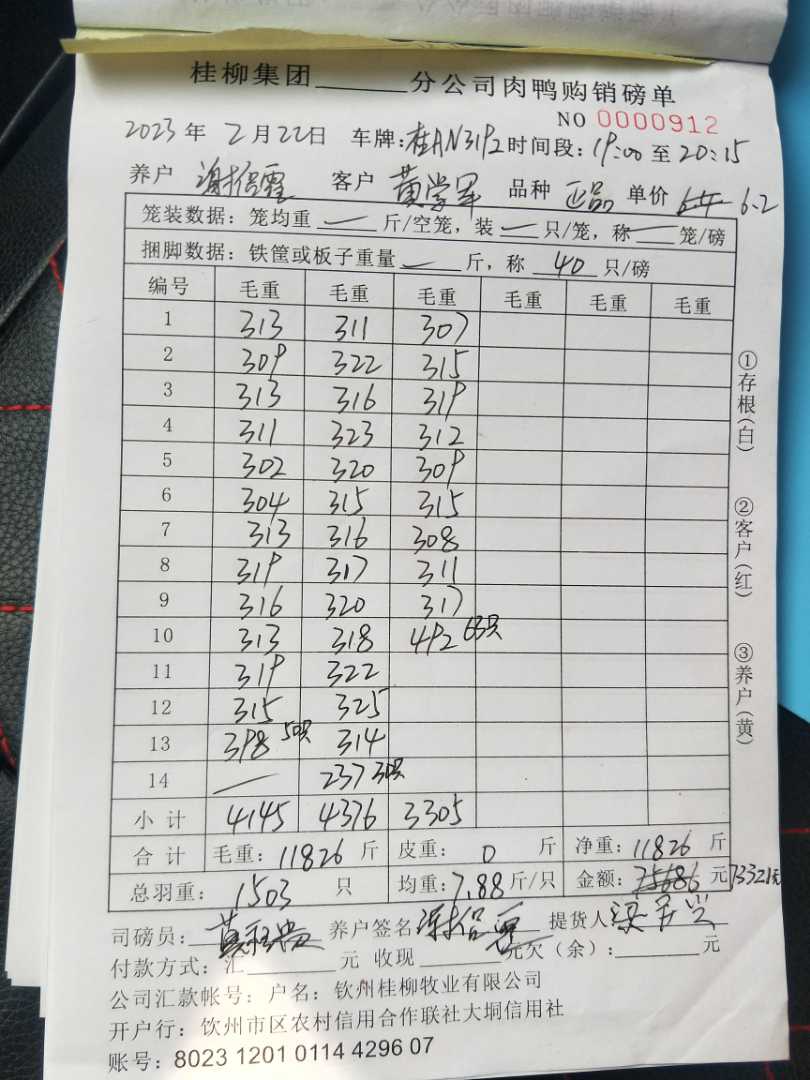 桂柳集团______分公司肉鸭购销磅单
NO 0000912
2023 年 2 月 22 日 车牌:桂AN3192 时间段: 19:00 至 20:15
养户 客户 黄学军 品种 正品 单价 6.2
笼装数据: 笼均重 — 斤/空笼, 装 — 只/笼, 称 — 笼/磅
捆脚数据: 铁筐或板子重量 — 斤, 称 40 只/磅
编号 毛重 毛重 毛重 毛重 毛重 毛重
1 313 311 307
2 309 322 315
3 313 316 319
4 311 323 312
5 302 320 309
6 304 315 315
7 313 316 308
8 319 317 311
9 316 320 317
10 313 318 492 63只
11 319 322
12 315 325
13 398 50只 314
14 — 237 30只
小计 4145 4376 3305
合计 毛重: 11826 斤 皮重: 0 斤 净重: 11826 斤
总羽重: 1503 只 均重: 7.88 斤/只 金额: 75686 元 73321元
司磅员: 养户签名 提货人
付款方式: 汇______元 收现______元欠(余): ______元
公司汇款帐号: 户名: 钦州桂柳牧业有限公司
开户行: 钦州市区农村信用合作联社大垌信用社
账号: 8023 1201 0114 4296 07
①存根(白)
②客户(红)
③养户(黄)